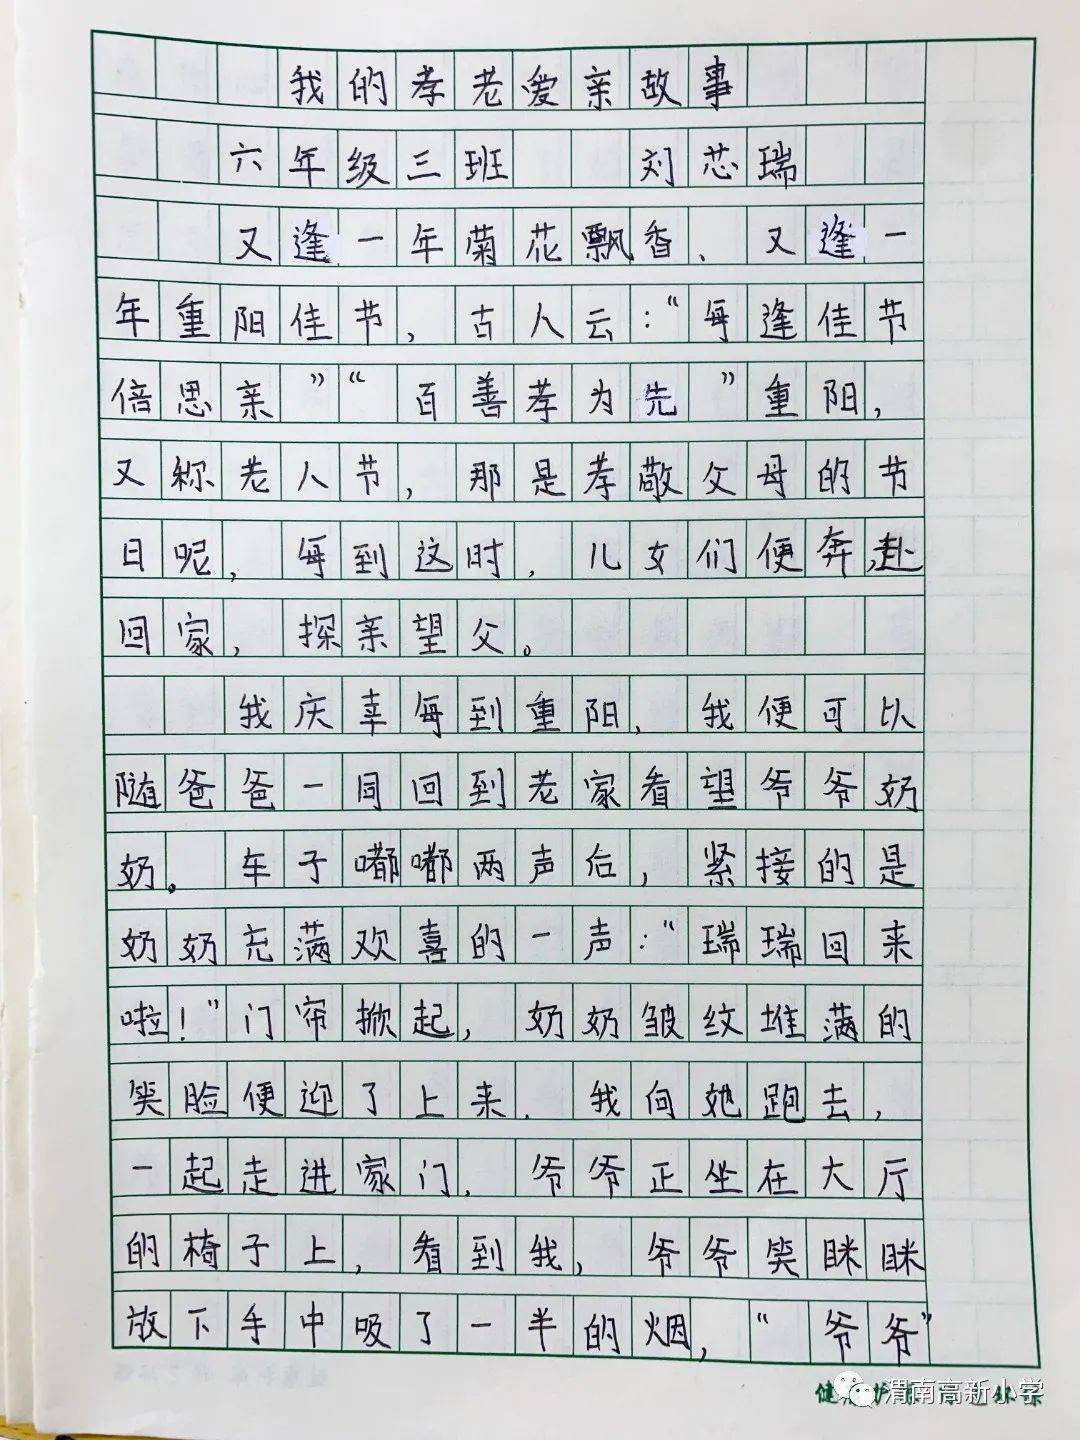 我的孝老爱亲故事
六年级三班 刘芯瑞
又逢一年菊花飘香、又逢一
年重阳佳节，古人云：“每逢佳节
倍思亲”“百善孝为先”重阳，
又称老人节，那是孝敬父母的节
日呢，每到这时，儿女们便奔赴
回家，探亲望父。
我庆幸每到重阳，我便可以
随爸爸一同回到老家看望爷爷奶
奶。车子嘟嘟两声后，紧接的是
奶奶充满欢喜的一声：“瑞瑞回来
啦！”门帘掀起，奶奶皱纹堆满的
笑脸便迎了上来．我向她跑去，
一起走进家门．爷爷正坐在大厅
的椅子上，看到我，爷爷笑眯眯
放下手中吸了一半的烟，“爷爷”
渭南高新小学